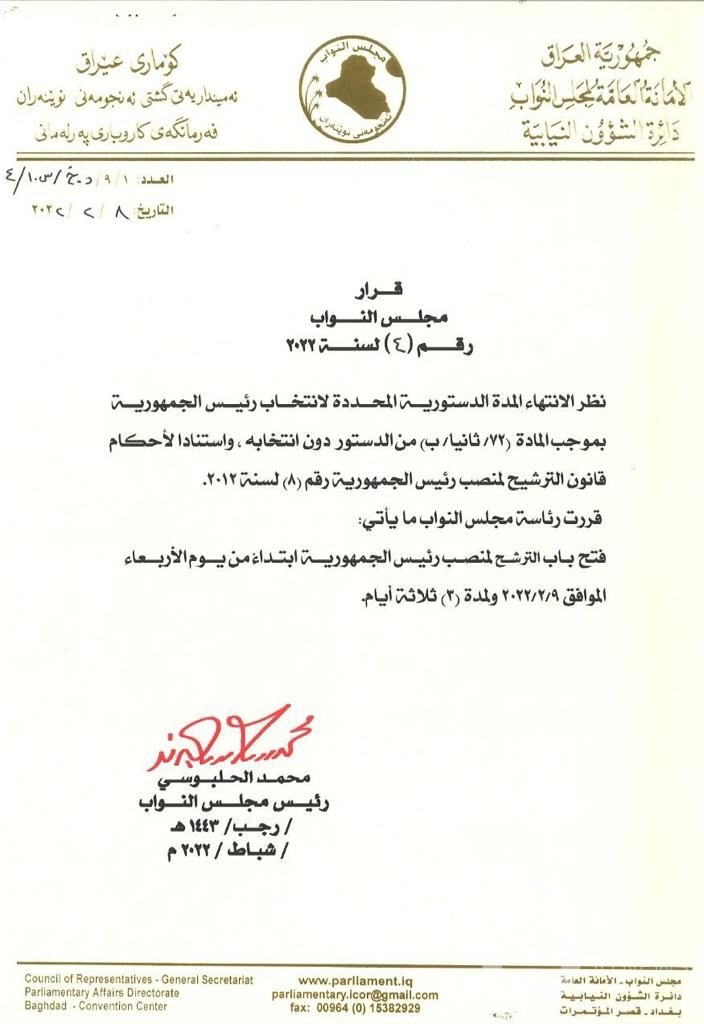 جمهورية العراق
الأمانة العامة لمجلس النواب
دائرة الشؤون النيابية
مجلس النواب
ئەنجومەنی نوێنەران
كۆماری عێراق
ئەمینداریەتی گشتی ئەنجومەنی نوێنەران
فەرمانگەی كاروباری پەرلەمانی
العدد: ١/ ٩/
التاريخ: ٨/ ٢/ ٢٠٢٢
قرار
مجلس النواب
رقم (٤) لسنة ٢٠٢٢
نظر الانتهاء المدة الدستورية المحددة لانتخاب رئيس الجمهورية
بموجب المادة (٧٢/ ثانيا/ ب) من الدستور دون انتخابه ، واستنادا لأحكام
قانون الترشيح لمنصب رئيس الجمهورية رقم (٨) لسنة ٢٠١٢.
قررت رئاسة مجلس النواب ما يأتي:
فتح باب الترشح لمنصب رئيس الجمهورية ابتداءً من يوم الأربعاء
الموافق ٢٠٢٢/٢/٩ ولمدة (٣) ثلاثة أيام.
محمد الحلبوسي
رئيس مجلس النواب
/ رجب/ ١٤٤٣ هـ
/ شباط / ٢٠٢٢ م
Council of Representatives - General Secretariat
Parliamentary Affairs Directorate
Baghdad - Convention Center
www.parliament.iq
parliamentary.icor@gmail.com
fax: 00964 (0) 15382929
مجلس النواب - الأمانة العامة
دائرة الشؤون النيابية
بغداد - قصر المؤتمرات